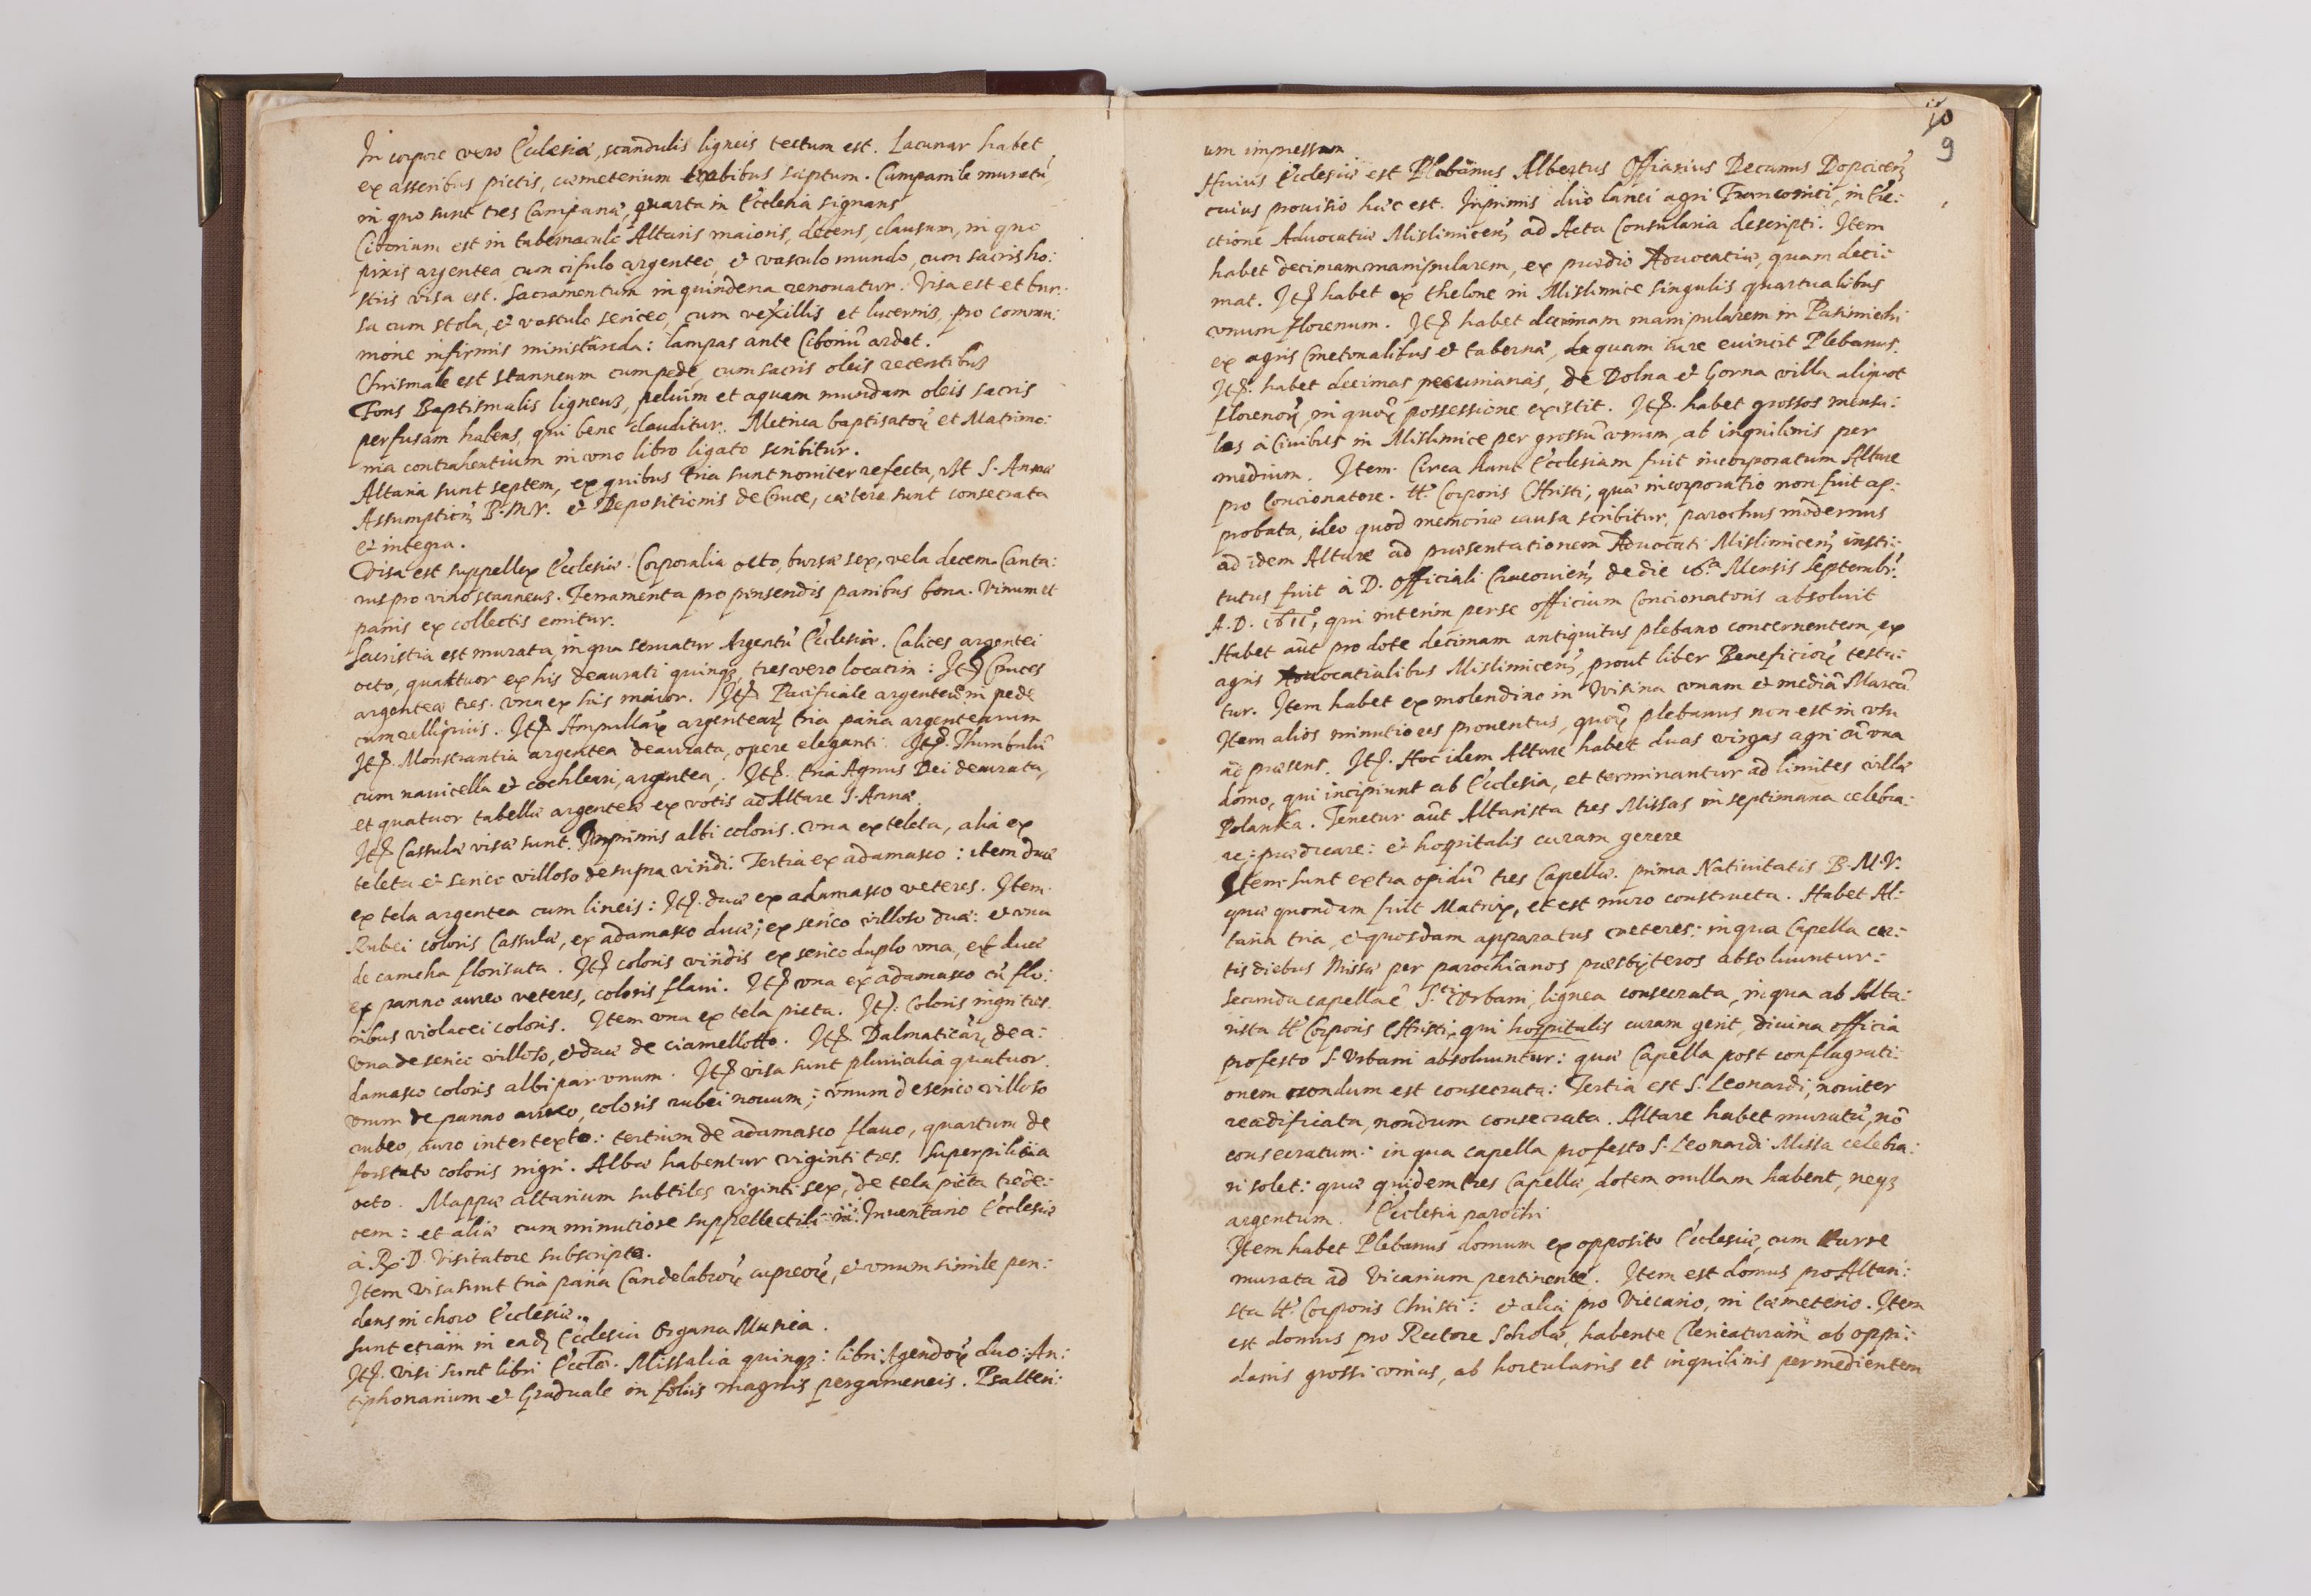 In corpore vero Ecclesiæ, scandulis ligneis tectum est. Lacunar habet
ex asseribus pictis, cæmeterium trabibus septum. Campanile muratū,
in quo sunt tres Campanæ, quarta in Ecclesia signans
Ciborium est in tabernaculo Altaris maioris, decens, clausum, in quo
pixis argentea cum cifulo argenteo, et vasculo mundo, cum sacris ho:
stiis visa est. Sacramentum in quindena renouatur. Visa est et bur:
sa cum stola, et vasculo sericeo, cum vexillis et lucernis, pro commu:
nione infirmis ministranda: lampas ante Ciboriū ardet.
Chrismale est stanneum cum pede, cum sacris oleis recentibus
Fons Baptismalis ligneus, peluim et aquam mundam oleis sacris
perfusam habens, qui bene clauditur. Metrica baptisatorū et Matrimo:
nia contrahentium in vno libro ligato scribitur.
Altaria sunt septem, ex quibus tria sunt nouiter refecta, vt S. Annæ
Assumptionis B.M.V. et Depositionis de Cruce, cætera sunt consecrata
et integra.
Visa est suppellex Ecclesiæ. Corporalia octo, bursæ sex, vela decem. Canta:
rus pro vino stanneus. Ferramenta pro pinsendis panibus bona. Vinum et
panis ex collectis emitur.
Sacristia est murata, in qua seruatur Argentū Ecclesiæ. Calices argentei
octo, quattuor ex his deaurati quinqȝ, tres vero locatim: Itē Cruces
argenteæ tres. vna ex his maior. Itē Pacificale argenteū in pede
cum relliquiis. Itē Ampullarū argentearū tria paria argentearum
Itē. Monstrantia argentea deaurata, opere eleganti. Itē. Thuribulū
cum nauicella et cochleari, argentea; Itē. tria Agnus Dei deaurata,
et quatuor tabellæ argenteæ ex votis ad Altare S. Annæ.
Itē Cassulæ visæ sunt. Inprimis albi coloris. vna ex teleta, alia ex
teleta et serico villoso desupra viridi: Tertia ex adamasco: item duæ
ex tela argentea cum lineis: Itē. duæ ex adamasco veteres. Item.
Rubei coloris Cassulæ, ex adamasco duæ; ex serico villoso duæ: et vna
de camcha florisata. Itē coloris viridis ex serico duplo vna, et duæ
ex panno aureo veteres, coloris flaui. Itē vna ex adamasco cū flo:
ribus violacei coloris. Item vna ex tela picta. Itē. Coloris nigri tres.
vna de serico villoso, et duæ de ciamellotto. Itē Dalmaticarū de a:
damasco coloris albi par vnum. Itē visa sunt pluuialia quatuor.
vnum de panno aureo, coloris rubei nouum; vnum de serico villoso
rubeo, auro intertexto: tertium de adamasco flauo, quartum de
forstato coloris nigri. Albæ habentur viginti tres. Superpilicia
octo. Mappæ altarium subtiles viginti sex, de tela picta trede:
cem: et alia cum minutiore suppellectili in Inuentario Ecclesiæ
à R.D. Visitatore subscripta.
Item visa sunt tria paria Candelabrorū cupreorū, et vnum simile pen:
dens in choro Ecclesiæ.
Sunt etiam in eadē Ecclesia Organa Musica.
Itē. visi sunt libri Ecclæ. Missalia quinqȝ: libri Agendorū duo: An:
tiphonarium et Graduale in foliis magnis pergameneis. Psalteri:
10
9
um impressum
Huius Ecclesiæ est Plebanus Albertus Offiarius Decanus Dopcicens̄
cuius prouisio hæc est. Inprimis duo lanei agri Franconici, in Ere:
ctione Aduocatiæ Mislimicens̄ ad Acta Consularia descripti. Item
habet decimam manipularem, ex prædio Aduocatiæ, quam deci:
mat. Itē habet ex thelone in Mislimice singulis quartualibus
vnum florenum. Itē habet decimam manipularem in Pasimiechi
ex agris Cmetonalibus et taberna, quam iure euincit Plebanus.
Itē. habet decimas pecuniarias, de Dolna et Gorna villa aliquot
Florenorū, in quorū possessione existit. Itē. habet grossos mensa:
les à Ciuibus in Mislimice per grossū vnum, ab inquilinis per
medium. Item. Circa hanc Ecclesiam fuit incorporatum Altare
pro Concionatore. tt. Corporis Christi, quæ incorporatio non fuit ap:
probata, ideo quod memoriæ causa scribitur, parochus modernus
ad idem Altare ad præsentationem Aduocati Mislimicens̄ insti:
tutus fuit à D. Officiali Cracouiens̄ de die 16.a Mensis Septembr.
A.D. 1611, qui interim per se officium Concionatoris absoluit
Habet aūt pro dote decimam antiquitus plebano concernentem, ex
agris Aduocatialibus Mislimicens̄, prout liber Beneficiorū testa:
tur. Item habet ex molendino in Visina vnam et mediā Marcā
Item alios minutiores prouentus, quorū plebanus non est in vsu
ad præsens. Itē. Hoc idem Altare habet duas virgas agri cū vna
domo, qui incipiunt ab Ecclesia, et terminantur ad limites villæ
Polanka. Tenetur aūt Altarista tres Missas in septimana celebra:
re: prædicare: et hospitalis curam gerere
Item sunt extra opidū tres Capellæ. prima Natiuitatis B.M.V.
quæ quondam fuit Matrix, et est muro constructa. Habet Al:
taria tria, et quosdam apparatus veteres: in qua Capella cer:
tis diebus Missæ per parochianos præsbyteros absoluuntur:
Secunda capella ē S.cti Vrbani, lignea consecrata, in qua ab Alta:
rista tt. Corporis Christi, qui hospitalis curam gerit, diuina officia
pro festo S. Vrbani absoluuntur: quæ Capella post conflagrati:
onem nondum est consecrata: Tertia est S. Leonardi, nouiter
reædificata, nondum consecrata. Altare habet muratū, nō
consecratum: in qua capella pro festo S. Leonardi Missa celebra:
ri solet: quæ quidem tres Capellæ, dotem nullam habent, neqȝ
argentum. Ecclesia parochi
Item habet Plebanus domum ex opposito Ecclesiæ, cum turre
murata ad Vicarium pertinente. Item est domus pro Altari:
sta tt. Corporis Christi: et alia pro Viccario, in Cæmeterio. Item
est domus pro Rectore Scholæ, habente Clericaturam ab oppi:
danis grossi vnius, ab hortulanis et inquilinis per medientem